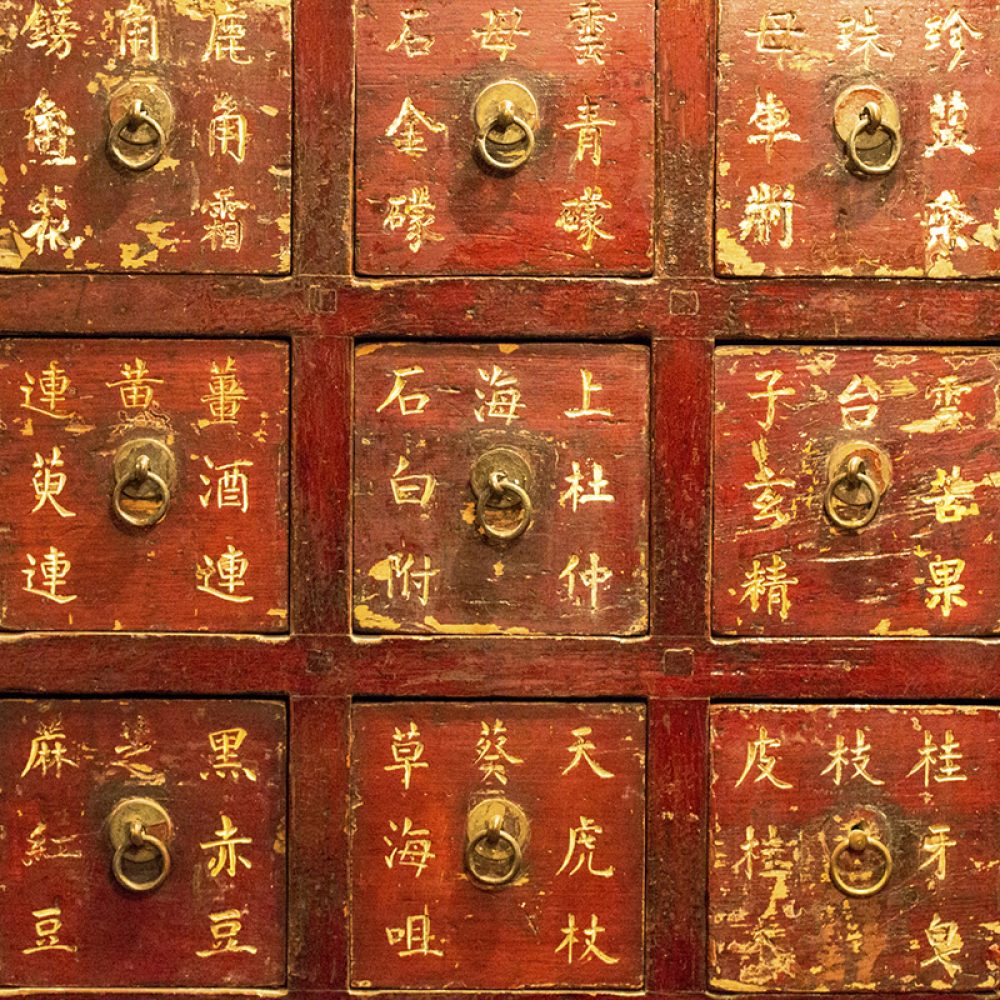 珍
珠
母車
雲青礞
母
石金礞
鹿角霜
角
鎊
雲苦果
台
子玄精
上杜仲
海
石白附
薑酒連
黃
連萸連
桂牙皂
枝
皮桂
天虎杖
葵
草海咀
黑赤豆
芝
麻紅豆